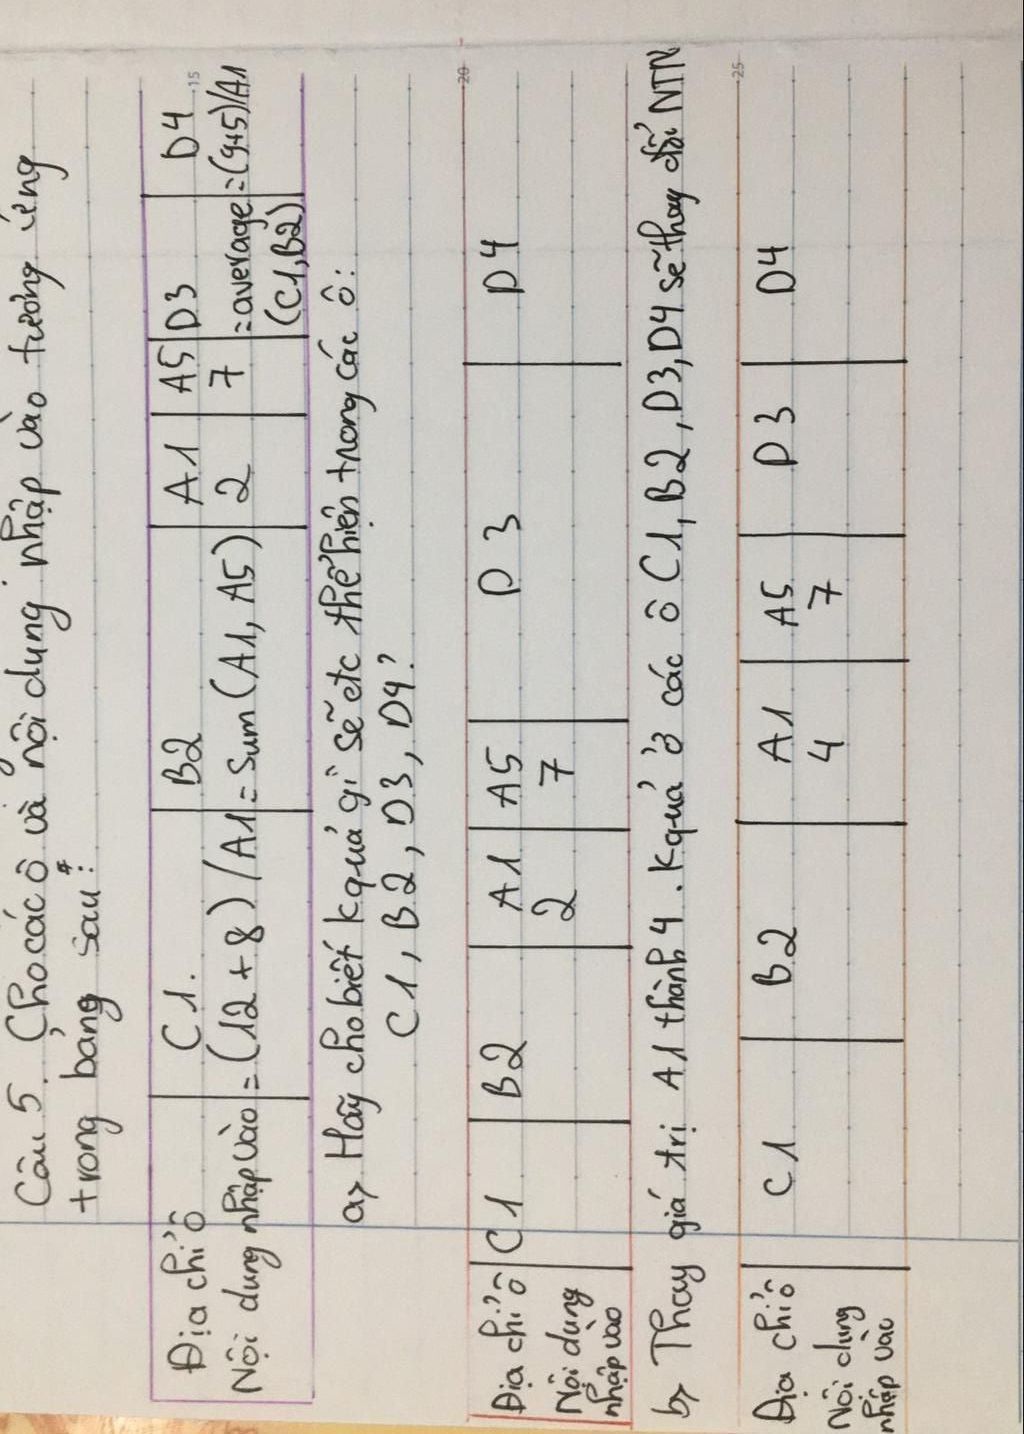 Câu 5. Cho các ô và nội dung nhập vào tương ứng
trong bảng sau:
Địa chỉ ô C1. B2 A1 A5 D3 D4
Nội dung nhập vào =(12+8)/A1 =Sum(A1,A5) 2 7 =average =(9+5)/A1
(C1,B2)
a> Hãy cho biết kquả gì sẽ đtc thể hiện trong các ô:
C1, B2, D3, D4?
Địa chỉ ô C1 B2 A1 A5 D3 D4
Nôi dùng 2 7
nhập vào
b> Thay giá trị A1 thành 4. Kquả ở các ô C1, B2, D3, D4 sẽ thay đổi NTN
Địa chỉ ô C1 B2 A1 A5 D3 D4
Nôi dung 4 7
nhập vào
15
20
25